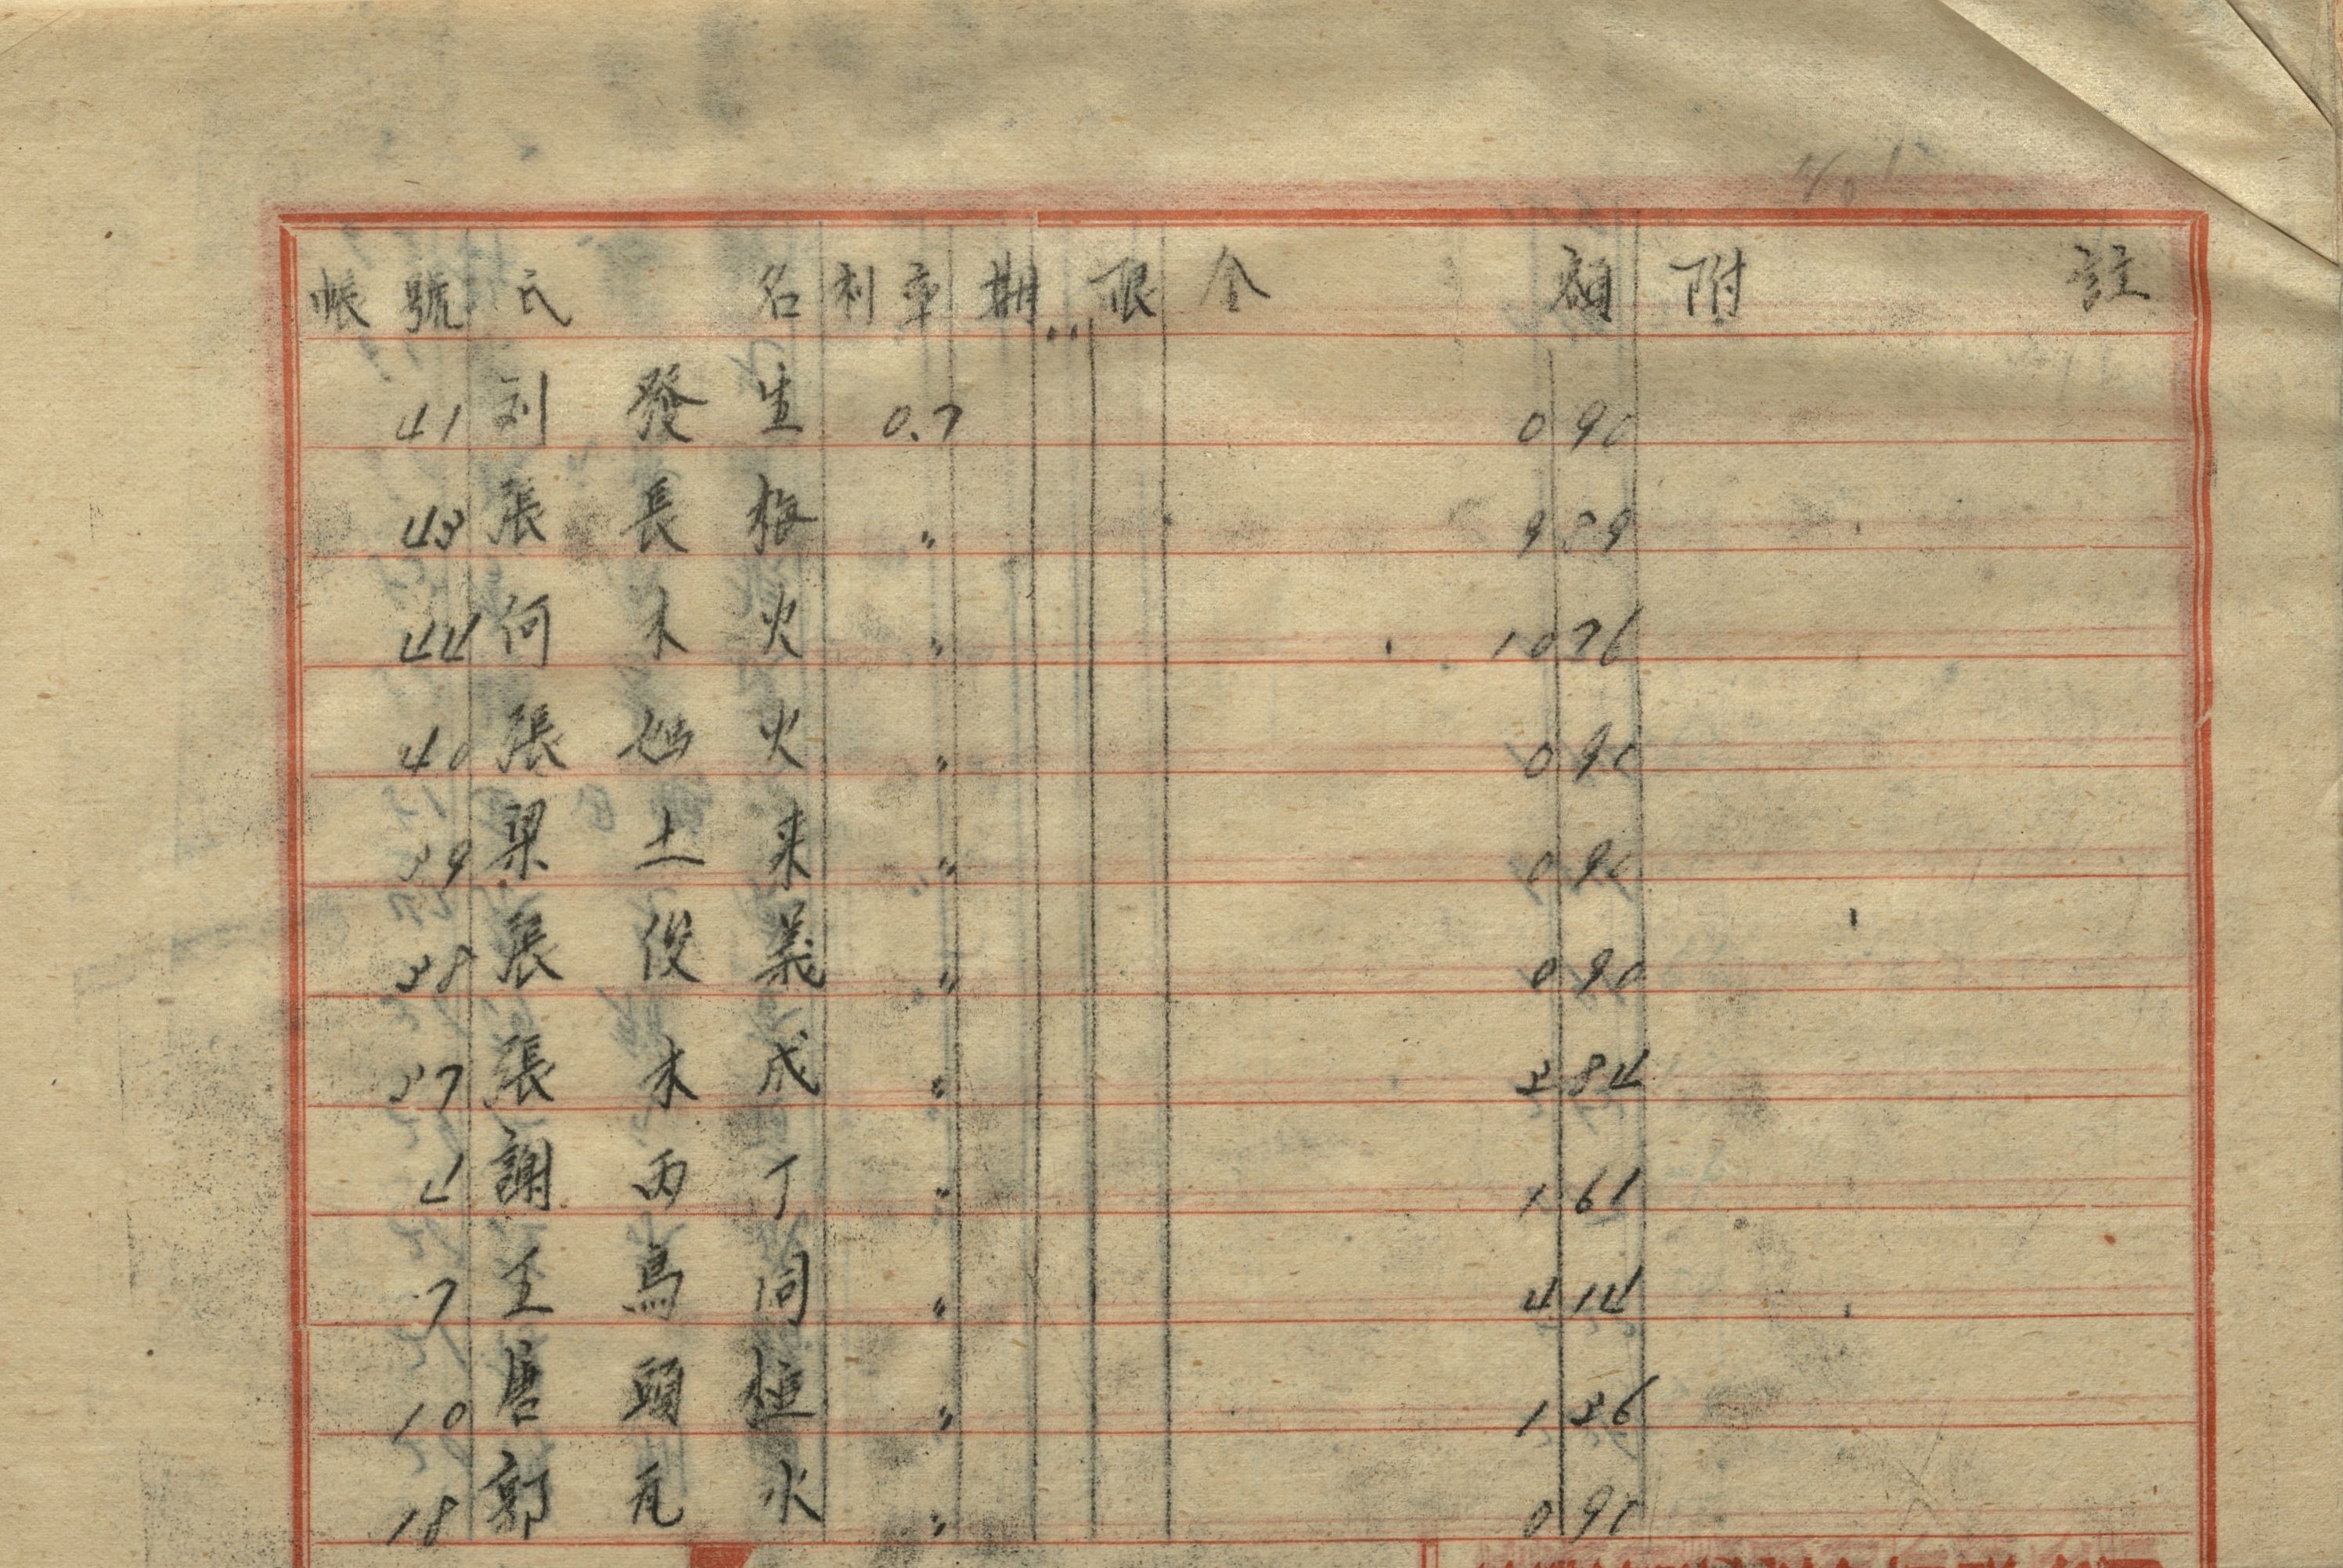 No 1
帳號 氏名 利率 期限 金額 附註
41 刘發生 0.7 0 90
43 張長梅 〃 9 89
44 何木火 〃 10 76
40 張火 〃 0 90
39 梁土来 〃 0 90
38 張俊義 〃 0 90
37 張木成 〃 3 84
4 謝丙丁 〃 1 61
7 王鳥同 〃 4 14
10 唐頭 〃 1 36
18 郭瓦水 〃 0 90